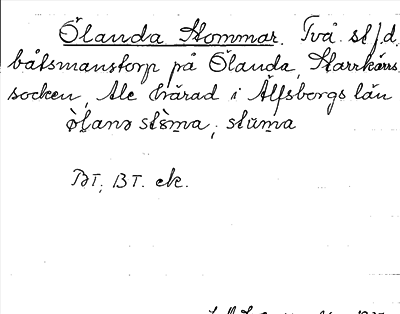 Ölanda Stommar. Två st. f.d.
båtsmanstorp på Ölanda, Starrkärrs
socken, Ale härad i Älfsborgs län
òlanɘ stòma, stuma
BT, BT. ek.